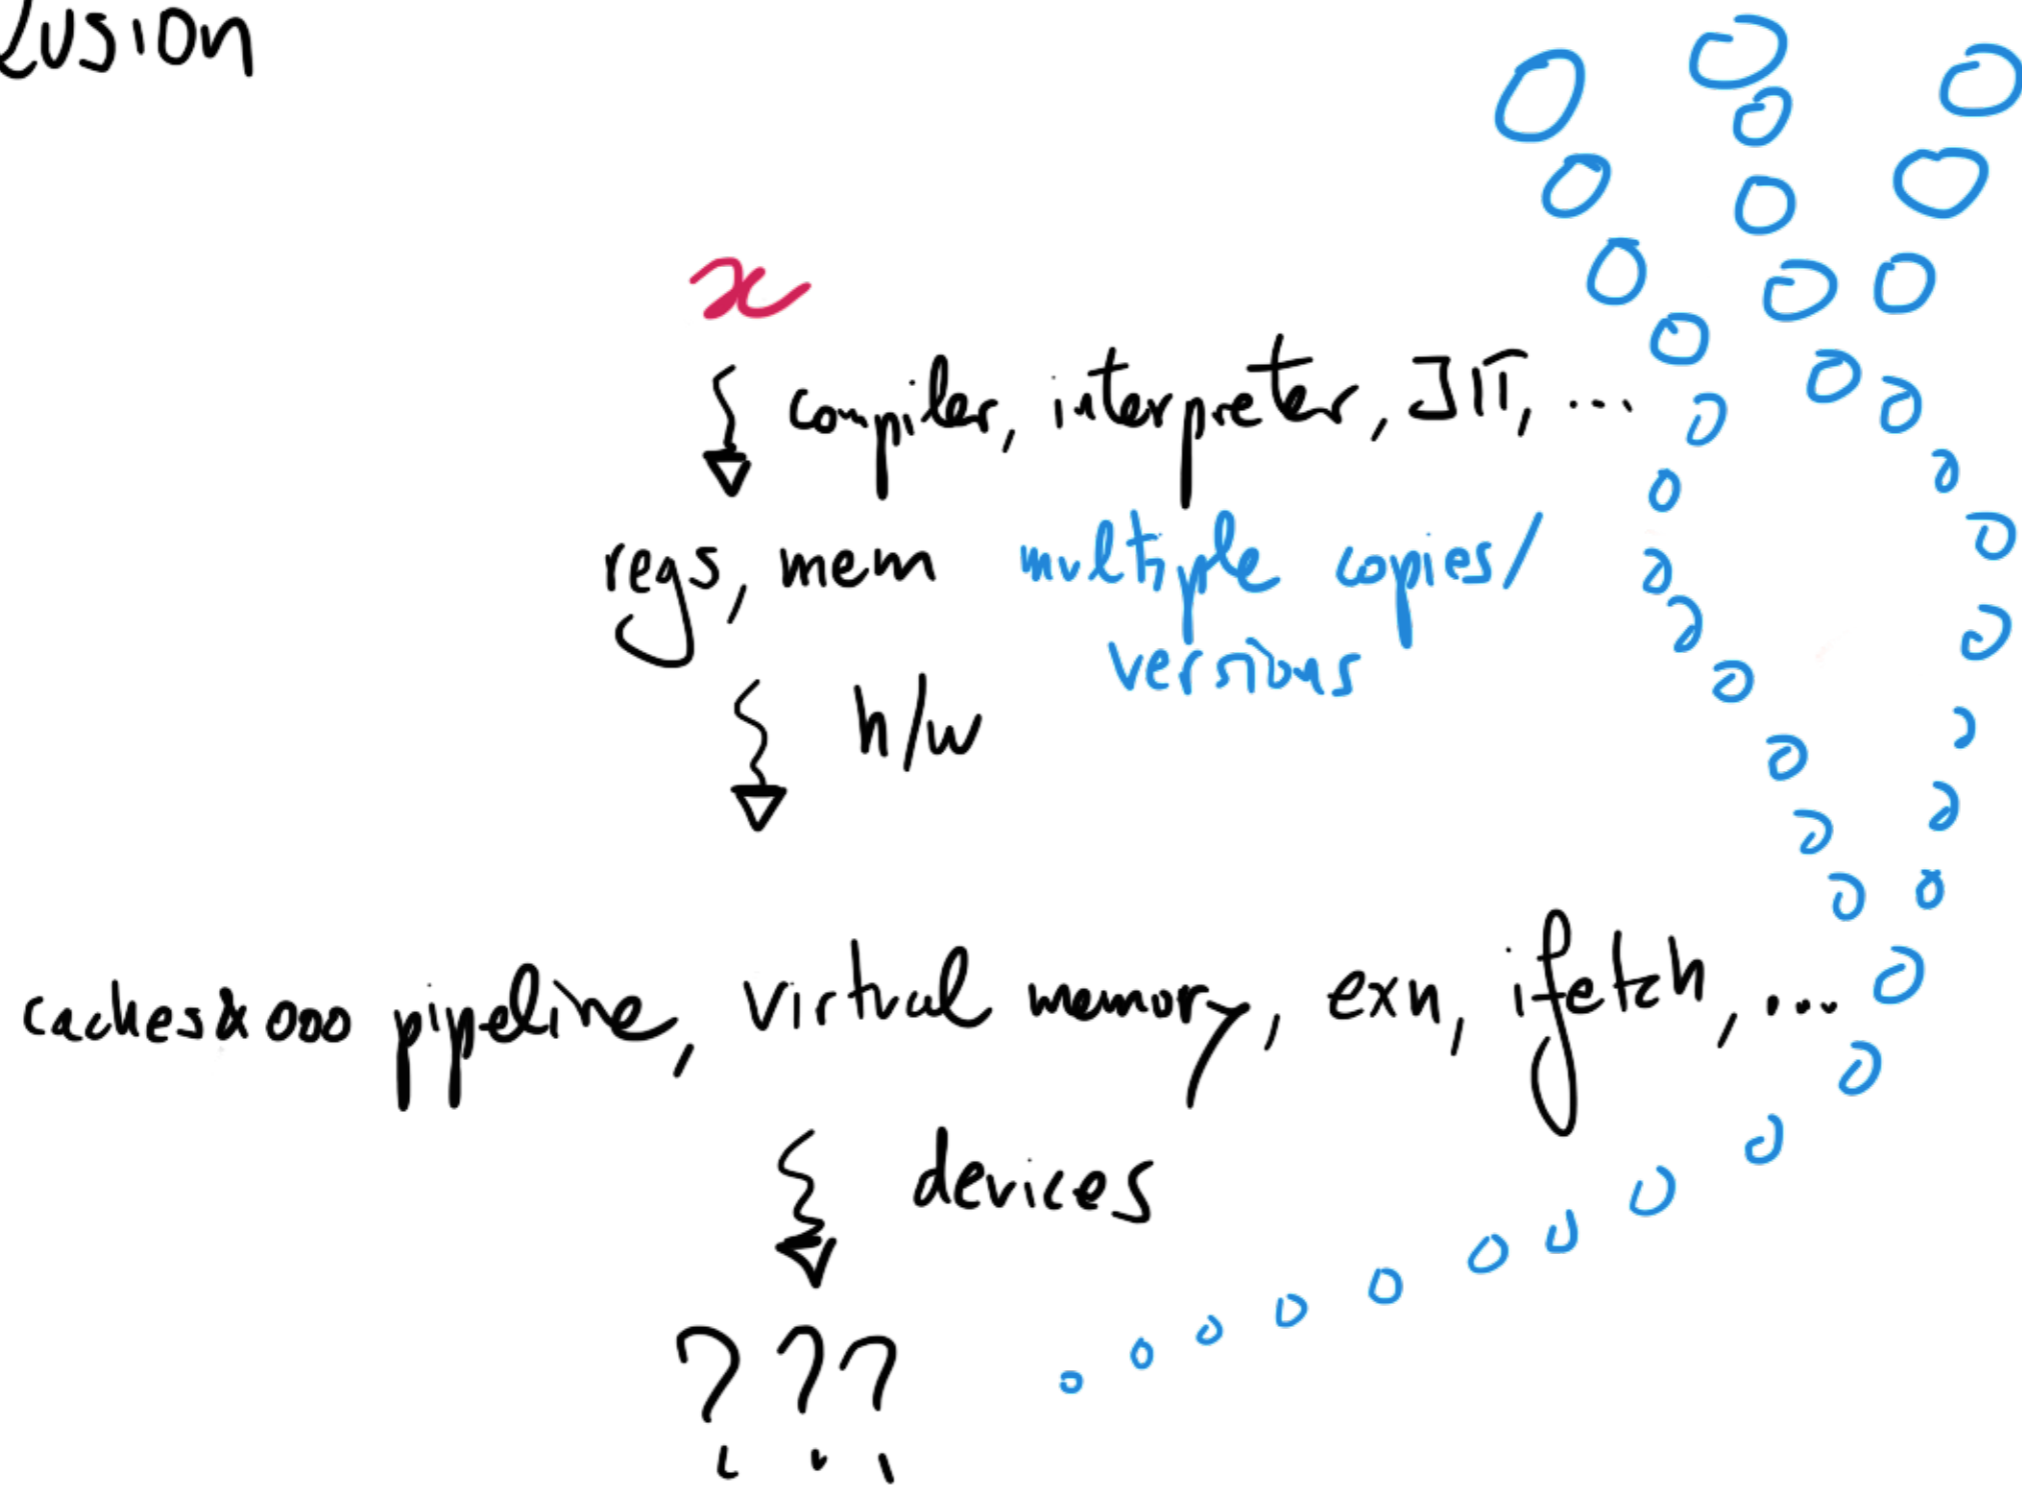 lusion
x
compiler, interpreter, JIT, ...
regs, mem multiple copies/
versions
h/w
caches & ooo pipeline, virtual memory, exn, ifetch, ...
devices
???